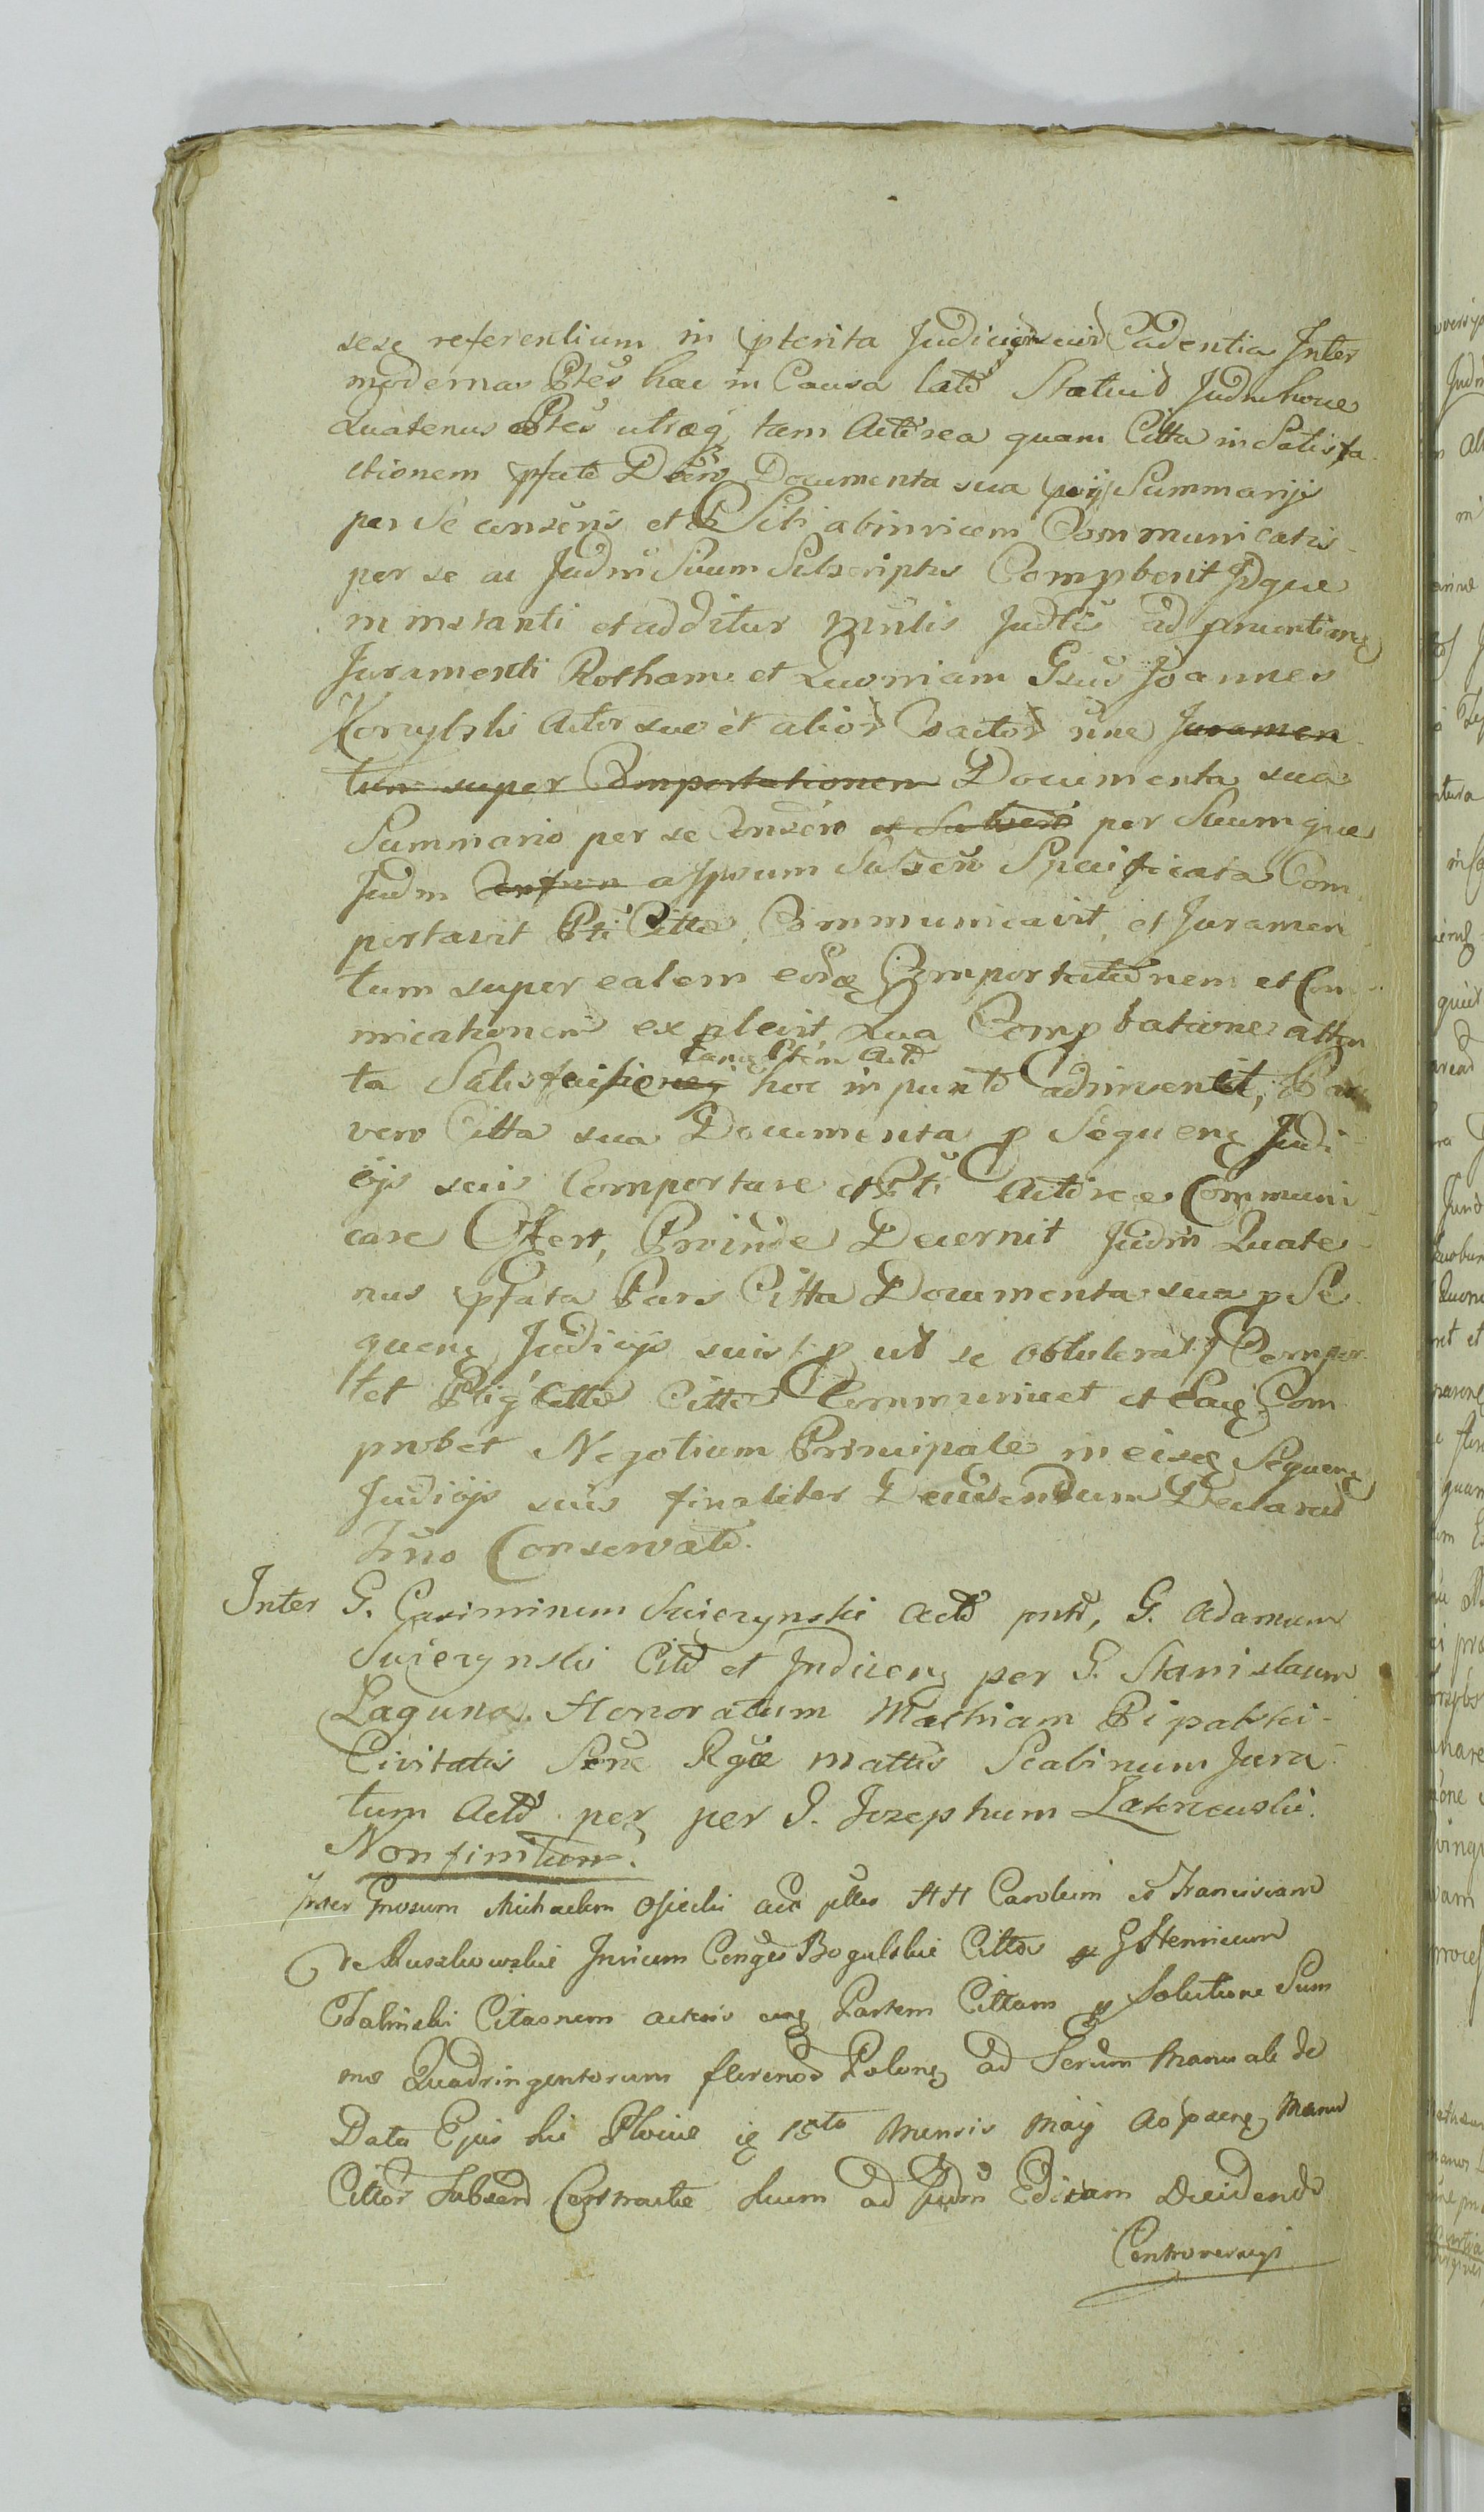 sese referentium in pterita Judicior suor Cadentia Inter
modernas Ptes hac in Causa lato Statuit Judm hocce
Quatenus Ptes utraeq tam Actorea quam Citta in Satisfa
ctionem pfati Decr Documenta sua Summarijs
per Se conscris et Sibi abinvicem Communicatis
per se ac Judm Suum Subscriptis Comptbent Idque
in instanti et additur Minlis Judlis ad
Juramenti Rotham et Quoniam Gsus Joannes
Korzybski Actor suo et alior actor nne Juramen
tum super Comportationem Documenta sua
Summario per se Conscro et per Suumque
Judm a Ipsum Subscr Specificata Com
portavit Pti Citta Communicavit et Juramen
tum super ealem eorq Comportationem et Com
nicationem explevit Qua Comptatione atten
tanq Ptem Act
ta Satisfaisse hoc in puncto adinvenit, Pars
vero Citta sua Documenta p Sequenq Judi
cijs suis Comportare et Pti Actorea Communi
care Offert, Proinde Decernit Judm Quate
nus pfata Pars Citta Documenta sua p Se
quenq Judicijs suis p ut se obtulerat Compor
tet Ptiq Citta Communicet et Eaq Com
probet Negotium Principale in eisq Sequenq
Judicijs suis finaliter Decidendum Declarat
Trno Conservato.
Inter G. Casimirum Swierzynski Act pntr, G. Adamum
Swierzynski Citt et Indicenq per G. Stanislaum
Laguna. Honoratum Mathiam Pipalski
Civitatis Srne Rgiae mattis Scabinum Jura
tum Act perq per G. Jozephum Lakncuski.
Non finitum.
Inter Gnosum Michaelem Osiecki act plles HH Carolum et Franciscam
de Kuszkowskie Invicem Conges Bogulskie Cittos p G Henricum
Chalinski Citaonem acteris erq Partem Cittam p Solutione Sum
mo Quadringentorum florenor Polonq ad Scrum Manuale de
Data Ejus die Plocice 15to Mensis Maij Ao paenq Manu
Cittor Subscro Contracte suum ad Judm Edictam Decidendo
Controversijs